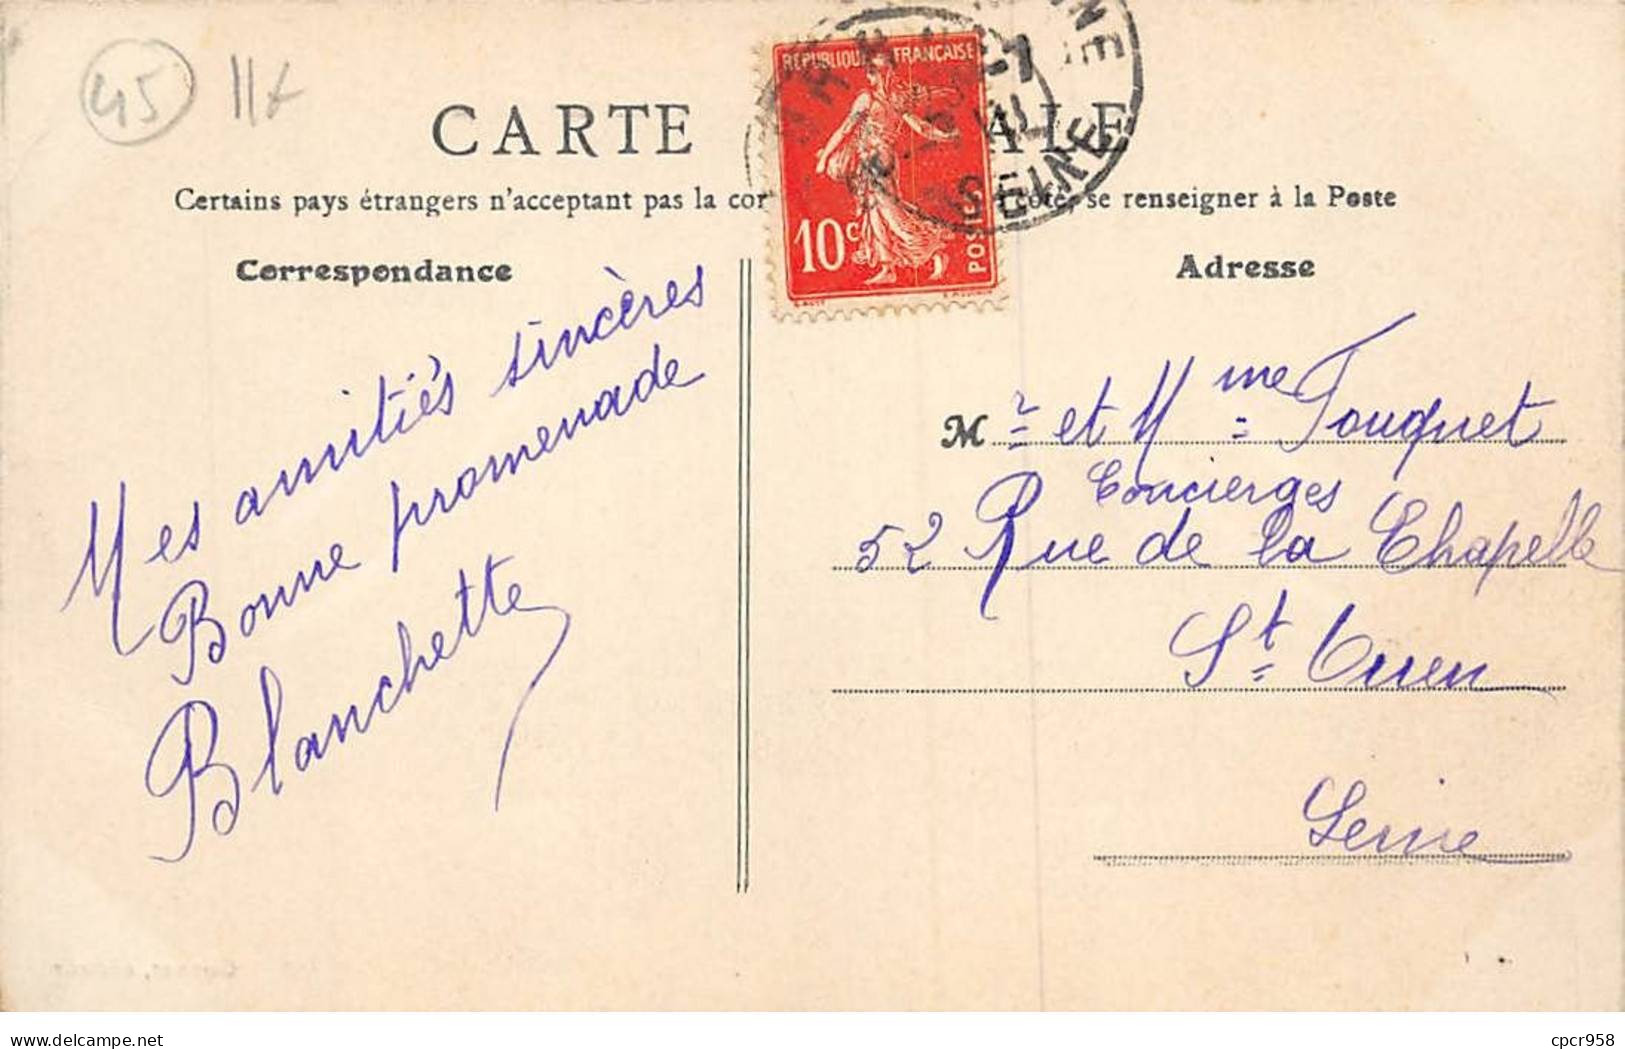 45
CARTE ALE
Certains pays étrangers n'acceptent pas la cor côté, se renseigner à la Poste
Correspondance
Adresse
REPUBLIQUE FRANÇAISE
10c
POSTES
SEINE
Mes amitiés sincères
Bonne promenade
Blanchette
Mr et Mme Touquet
Concierges
52 Rue de la Chapelle
St Ouen
Seine
www.delcampe.net
cpcr958